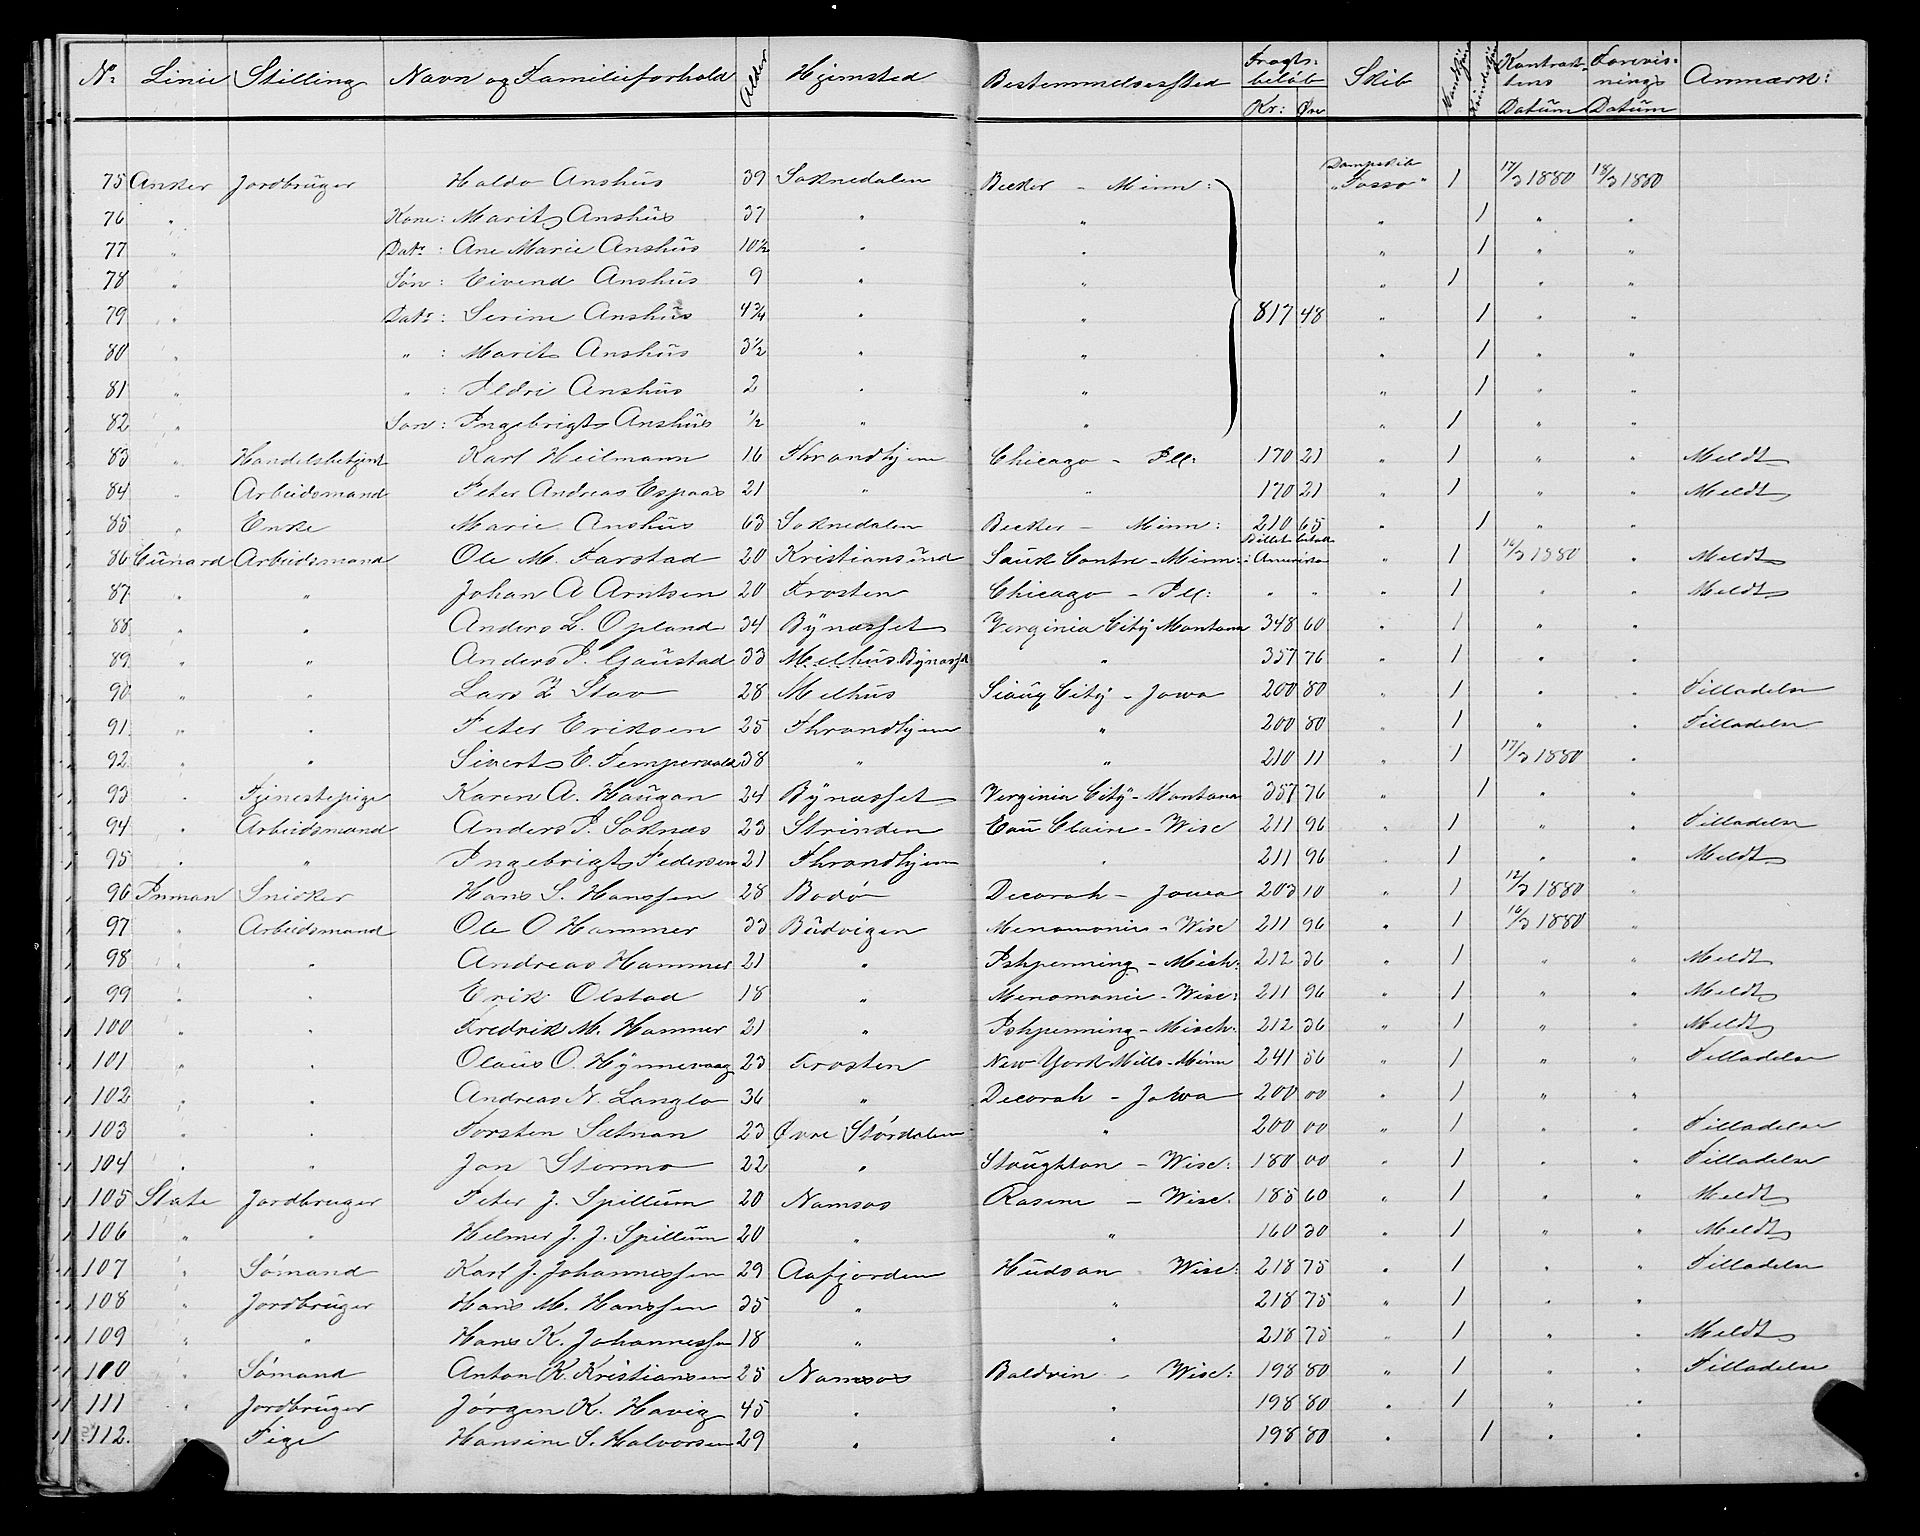 No. Linie Stilling Navn og Familieforhold Alder Hjemsted Bestemmelsessted Fragtbeløb Kr: Øre Skib Mandkjøn Kvindekjøn Kontraktens Datum Forevisnings Datum Anmærk:
75 Anker Jordbruger Haldo Anshus 39 Soknedalen Becker - Minn: Dampskib "Tasso" 1 17/3 1880 18/3 1880
76 " Kone: Marit Anshus 37 " " " 1 " "
77 " Datr: Ane Marie Anshus 10½ " " " 1 " "
78 " Søn: Eivend Anshus 9 " " " 1 " "
79 " Datr: Serine Anshus 4¾ " " 817 48 " 1 " "
80 " " : Marit Anshus 3½ " " " 1 " "
81 " " : Ildri Anshus 2 " " " 1 " "
82 " Søn: Ingebrigt Anshus ½ " " " 1 " "
83 " Handelsbetjent Karl Heilmann 16 Thrandhjem Chicago - Ill: 170 21 " 1 " " Meldt
84 " Arbeidsmand Peter Andreas Espaas 21 " " 170 21 " 1 " " Meldt
85 " Enke Marie Anshus 63 Soknedalen Becker - Minn: 210 65 " 1 " "
86 Cunard Arbeidsmand Ole M. Farstad 20 Kristiansund Sauk Centre - Minn: Billet betalt i Amerika " 1 16/3 1880 " Meldt
87 " " Johan A Arntsen 20 Frosten Chicago - Ill: " " " 1 " " Meldt
88 " " Anders L. Opland 34 Bynæsset Verginia City Montana 348 60 " 1 " "
89 " " Anders P. Gaustad 33 Melhus Bynæsset " 357 76 " 1 " "
90 " " Lars Z Stav 28 Melhus Sioux City - Jowa 200 80 " 1 " " Tilladelse
91 " " Peter Eriksen 25 Thrandhjem " 200 80 " 1 " " Tilladelse
92 " " Sivert E. Tempervold 38 " " 210 11 " 1 17/3 1880 "
93 " Tjenestepige Karen A. Haugan 24 Bynæsset Verginia City - Montana 357 76 " 1 " "
94 " Arbeidsmand Anders P. Saknæs 23 Strinden Eau Claire - Wisc 211 96 " 1 " " Tilladelse
95 " " Ingebrigt Pedersen 21 Thrandhjem " 211 96 " 1 " " Meldt
96 Inman Snedker Hans S. Hanssen 28 Bodø Decorah - Jowa 203 10 " 1 12/3 1880 "
97 " Arbeidsmand Ole O Hammer 33 Budvigen Menomonie - Wisc 211 96 " 1 16/3 1880 "
98 " " Andreas Hammer 21 " Ishpenning - Mich: 212 36 " 1 " " Meldt
99 " " Erik Olstad 18 " Menomonie - Wisc: 211 96 " 1 " " Meldt
100 " " Fredrik M. Hammer 21 " Ishpenning - Misch: 212 36 " 1 " " Meldt
101 " " Olaus O. Hynnevaag 23 Frosten New York Mills - Minn 241 56 " 1 " " Tilladelse
102 " " Andreas N. Langlo 36 " Decorah - Jowa 200 00 " 1 " "
103 " " Torsten Sætnan 23 Øvre Størdalen " 200 00 " 1 " " Tilladelse
104 " " Jon Stormo 22 " Stoughton - Wisc: 180 00 " 1 " " Tilladelse
105 State Jordbruger Peter J. Spillum 20 Namsos Rasine - Wisc: 185 60 " 1 " " Meldt
106 " " Helmer J. J. Spillum 20 " " 160 30 " 1 " " Meldt
107 " Sømand Karl J. Johannessen 29 Aafjorden Hudson - Wisc: 218 75 " 1 " " Tilladelse
108 " Jordbruger Hans M. Hanssen 35 " " 218 75 " 1 " "
109 " " Hans K. Johannessen 18 " " 218 75 " 1 " " Meldt
110 " Sømand Anton K. Kristiansen 25 Namsos Baldvin - Wisc: 198 80 " 1 " " Tilladelse
111 " Jordbruger Jørgen K. Havig 45 " " 198 80 " 1 " "
112. " Pige Hansine S. Halvorsen 29 " " 198 80 " 1 " "